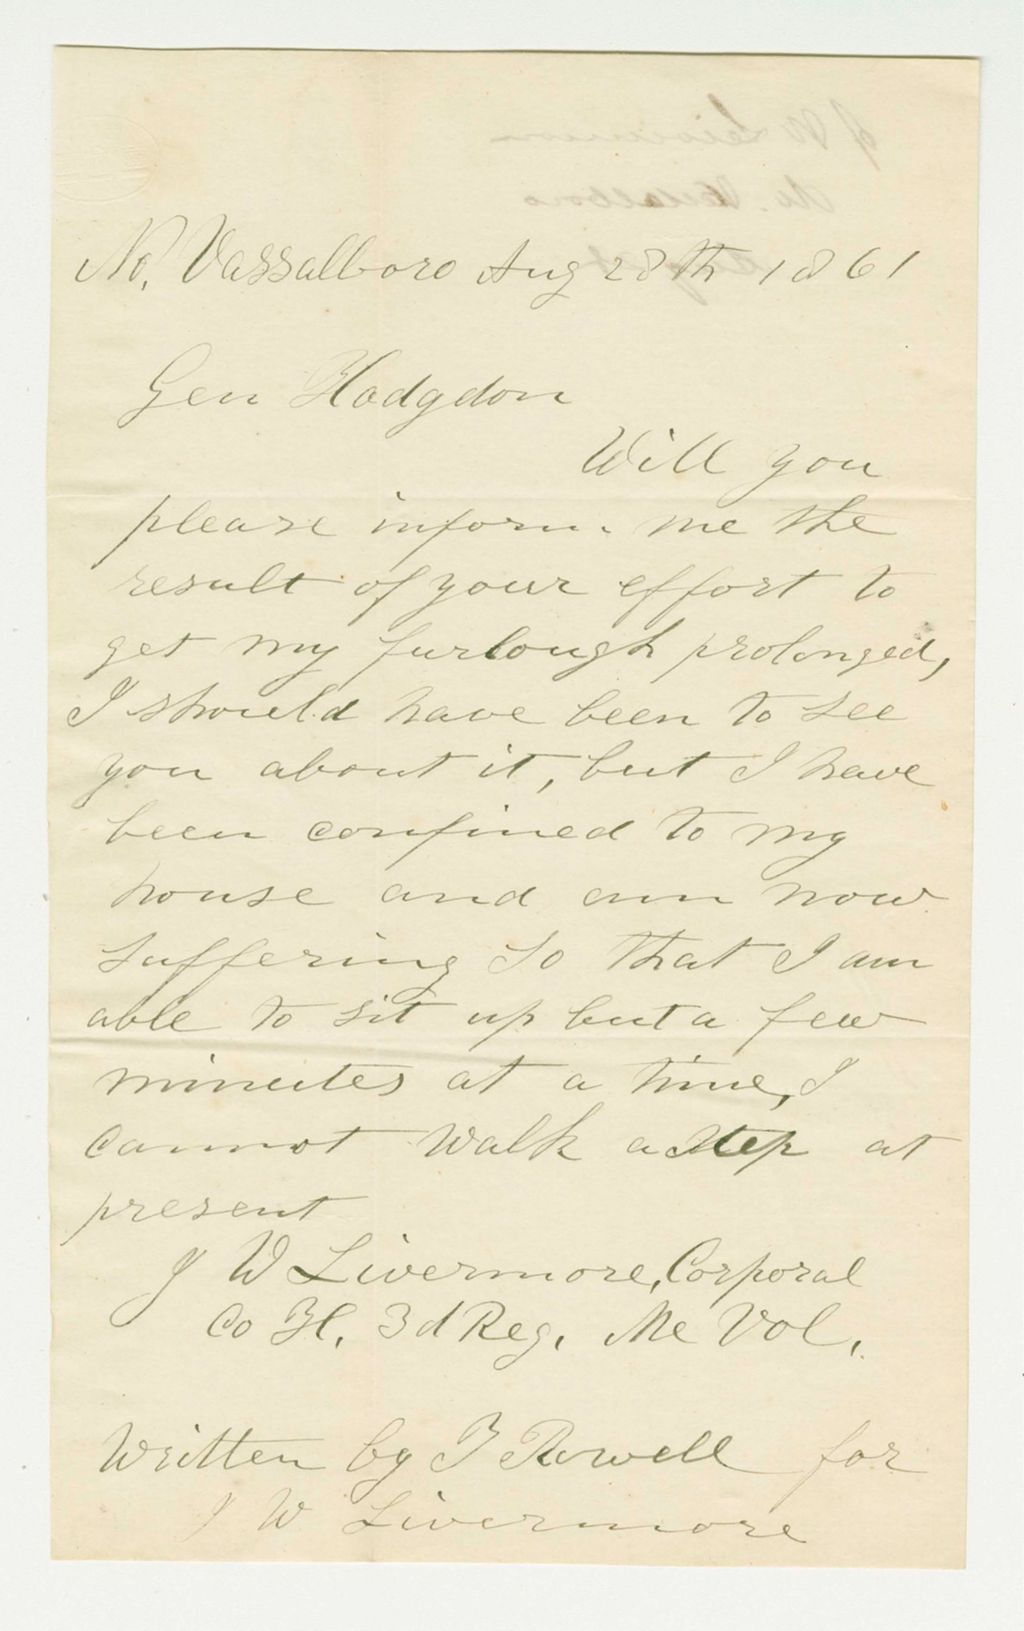 No. Vassalboro Aug 28th 1861
Gen Hodgdon
Will you
please inform me the
result of your effort to
get my furlough prolonged,
I should have been to see
you about it, but I have
been confined to my
house and am now
suffering so that I am
able to sit up but a few
minutes at a time, I
cannot walk a step at
present
J W Livermore, Corporal
Co H, 3d Reg, Me Vol,
Written by Rowell for
J W Livermore